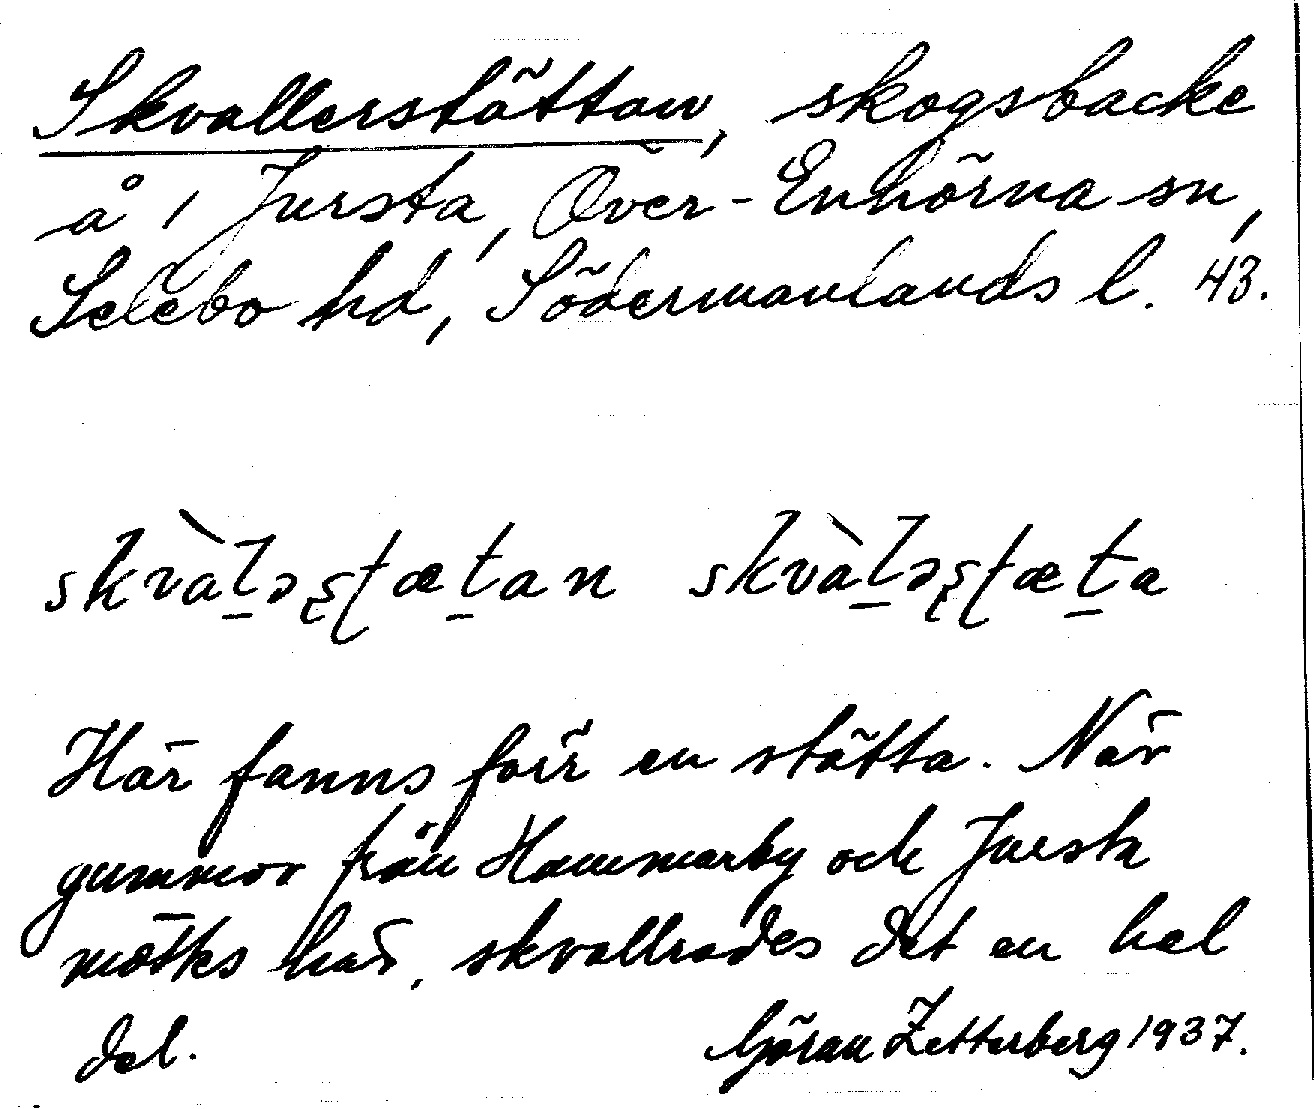 Skvallerstättan, skogsbacke
å 1 Jursta, Över-Enhörna sn,
Selebo hd, Södermanlands l. 43.
skvàl̠əʂʈæt̠an skvàl̠əʂʈæt̠a
Här fanns förr en stätta. När
gummor från Hammarby och Jursta
möttes här, skvallrades det en hel
del. Göran Zetterberg 1937.